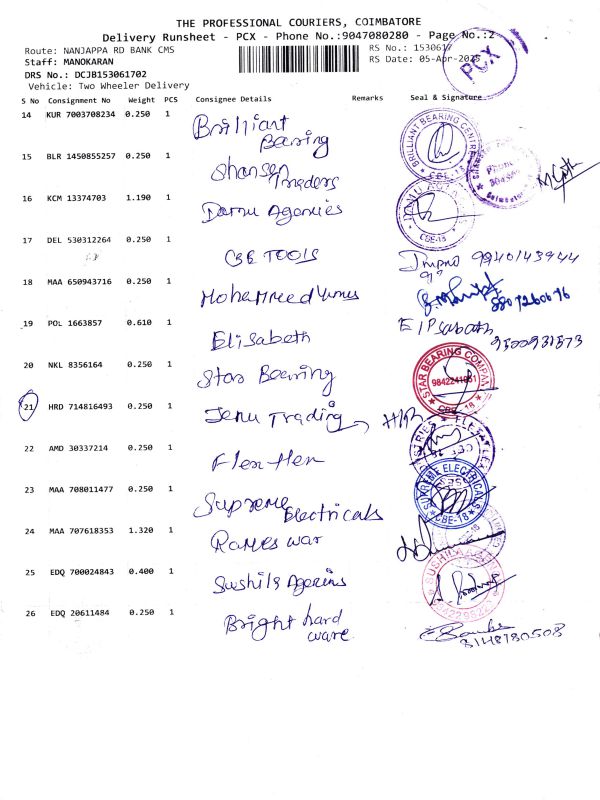 THE PROFESSIONAL COURIERS, COIMBATORE
Delivery Runsheet - PCX - Phone No.:9047080280 - Page No.:2
Route: NANJAPPA RD BANK CMS
RS No.: 1530617
Staff: MANOKARAN
RS Date: 05-Apr-2025
DRS No.: DCJB153061702
Vehicle: Two Wheeler Delivery
PCX
S No Consignment No Weight PCS Consignee Details Remarks Seal & Signature
14 KUR 7003708234 0.250 1 Brilliant Bearing
BRILLIANT BEARING CENTRE CBE-18
15 BLR 1450855257 0.250 1 Traders
16 KCM 13374703 1.190 1 Agencies
CBE-18
17 DEL 530312264 0.250 1 CBE TOOLS
9940143944
18 MAA 650943716 0.250 1 Mohammeed Yunus
8807260676
19 POL 1663857 0.610 1 Elisabeth
9500931573
20 NKL 8356164 0.250 1 Star Bearing
STAR BEARING COMPANY 9842241051 CBE-18
21 HRD 714816493 0.250 1 Jenu Trading
22 AMD 30337214 0.250 1 Flex
23 MAA 708011477 0.250 1 Supreme Electricals
SUPREME ELECTRICALS CBE-18
24 MAA 707618353 1.320 1 Rames war
25 EDQ 700024843 0.400 1 Sushils Agencies
SUSHIL
26 EDQ 20611484 0.250 1 Bright hard ware
8148780508